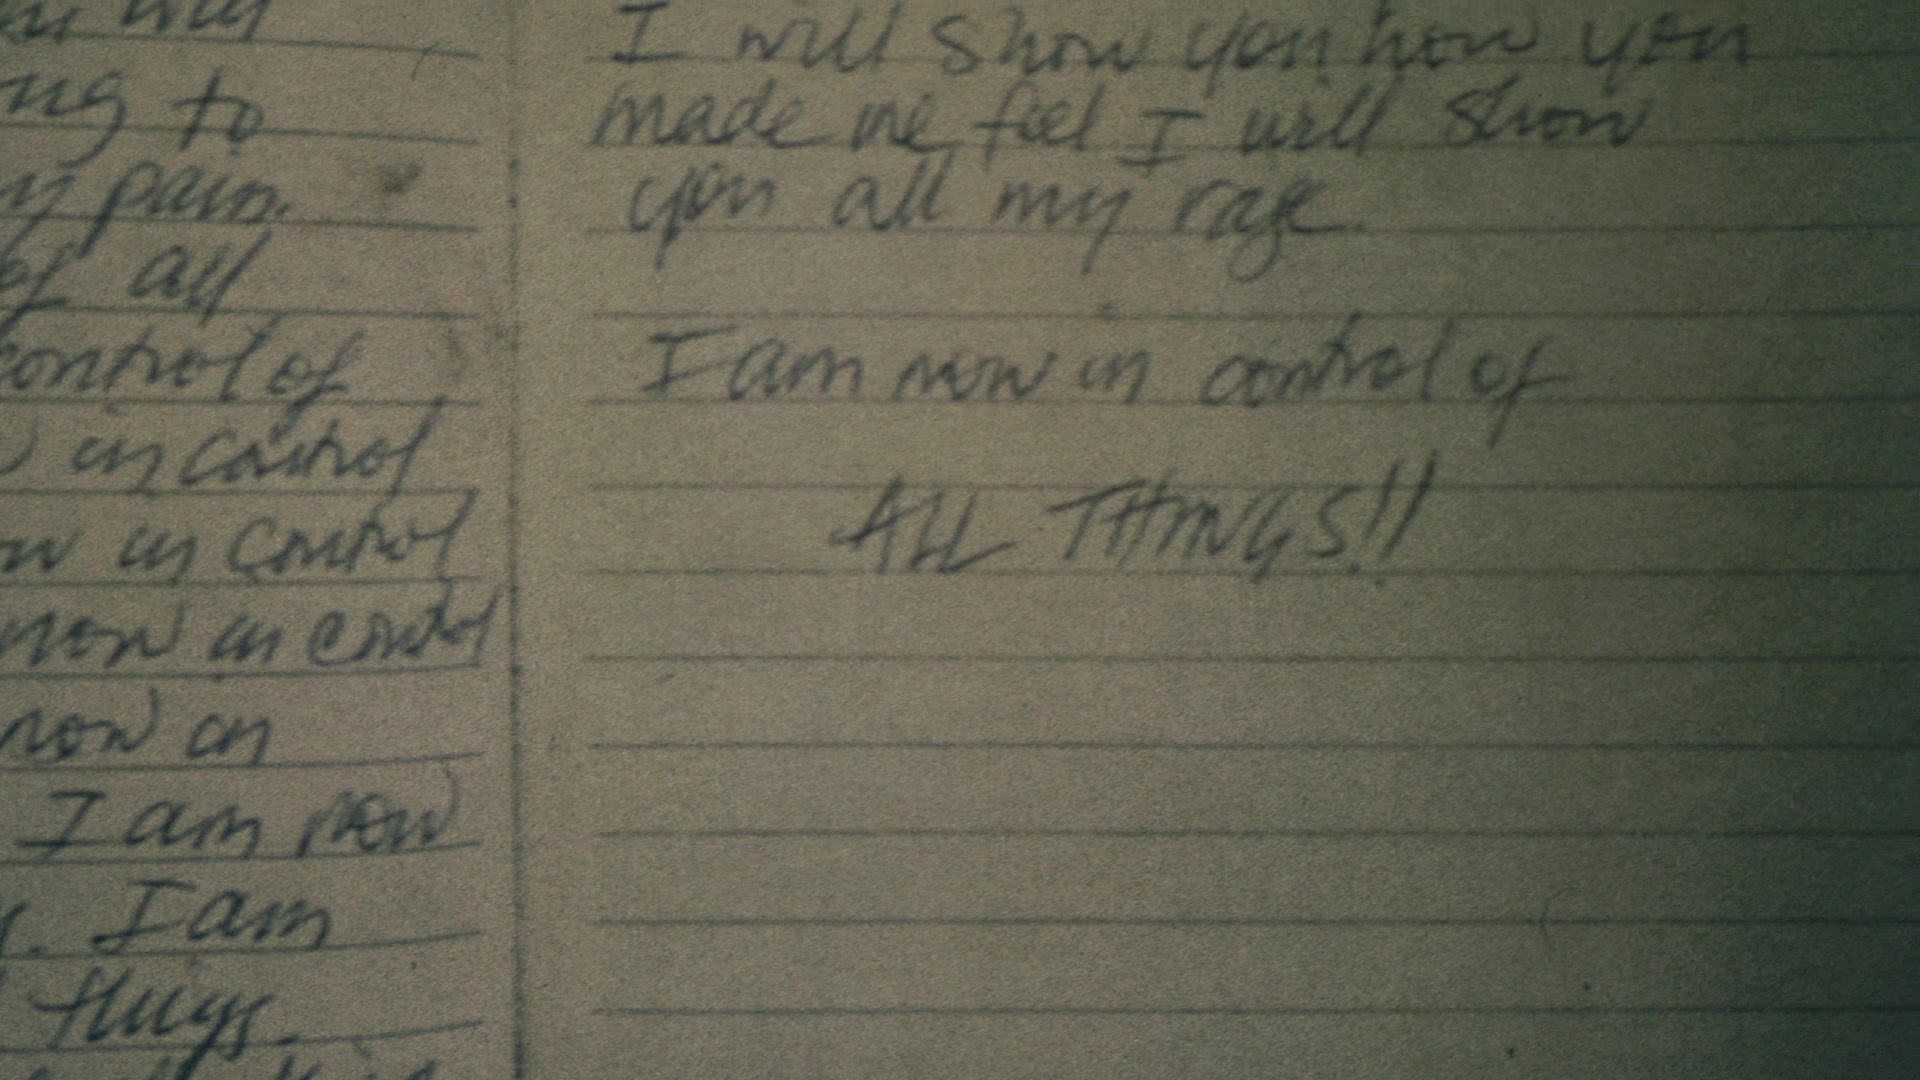 ng to
pain.
of all
control of
in control
in control
now in control
now in
I am now
I am
things.
I will show you how you
made me feel I will show
you all my rage.
I am now in control of
ALL THINGS!!